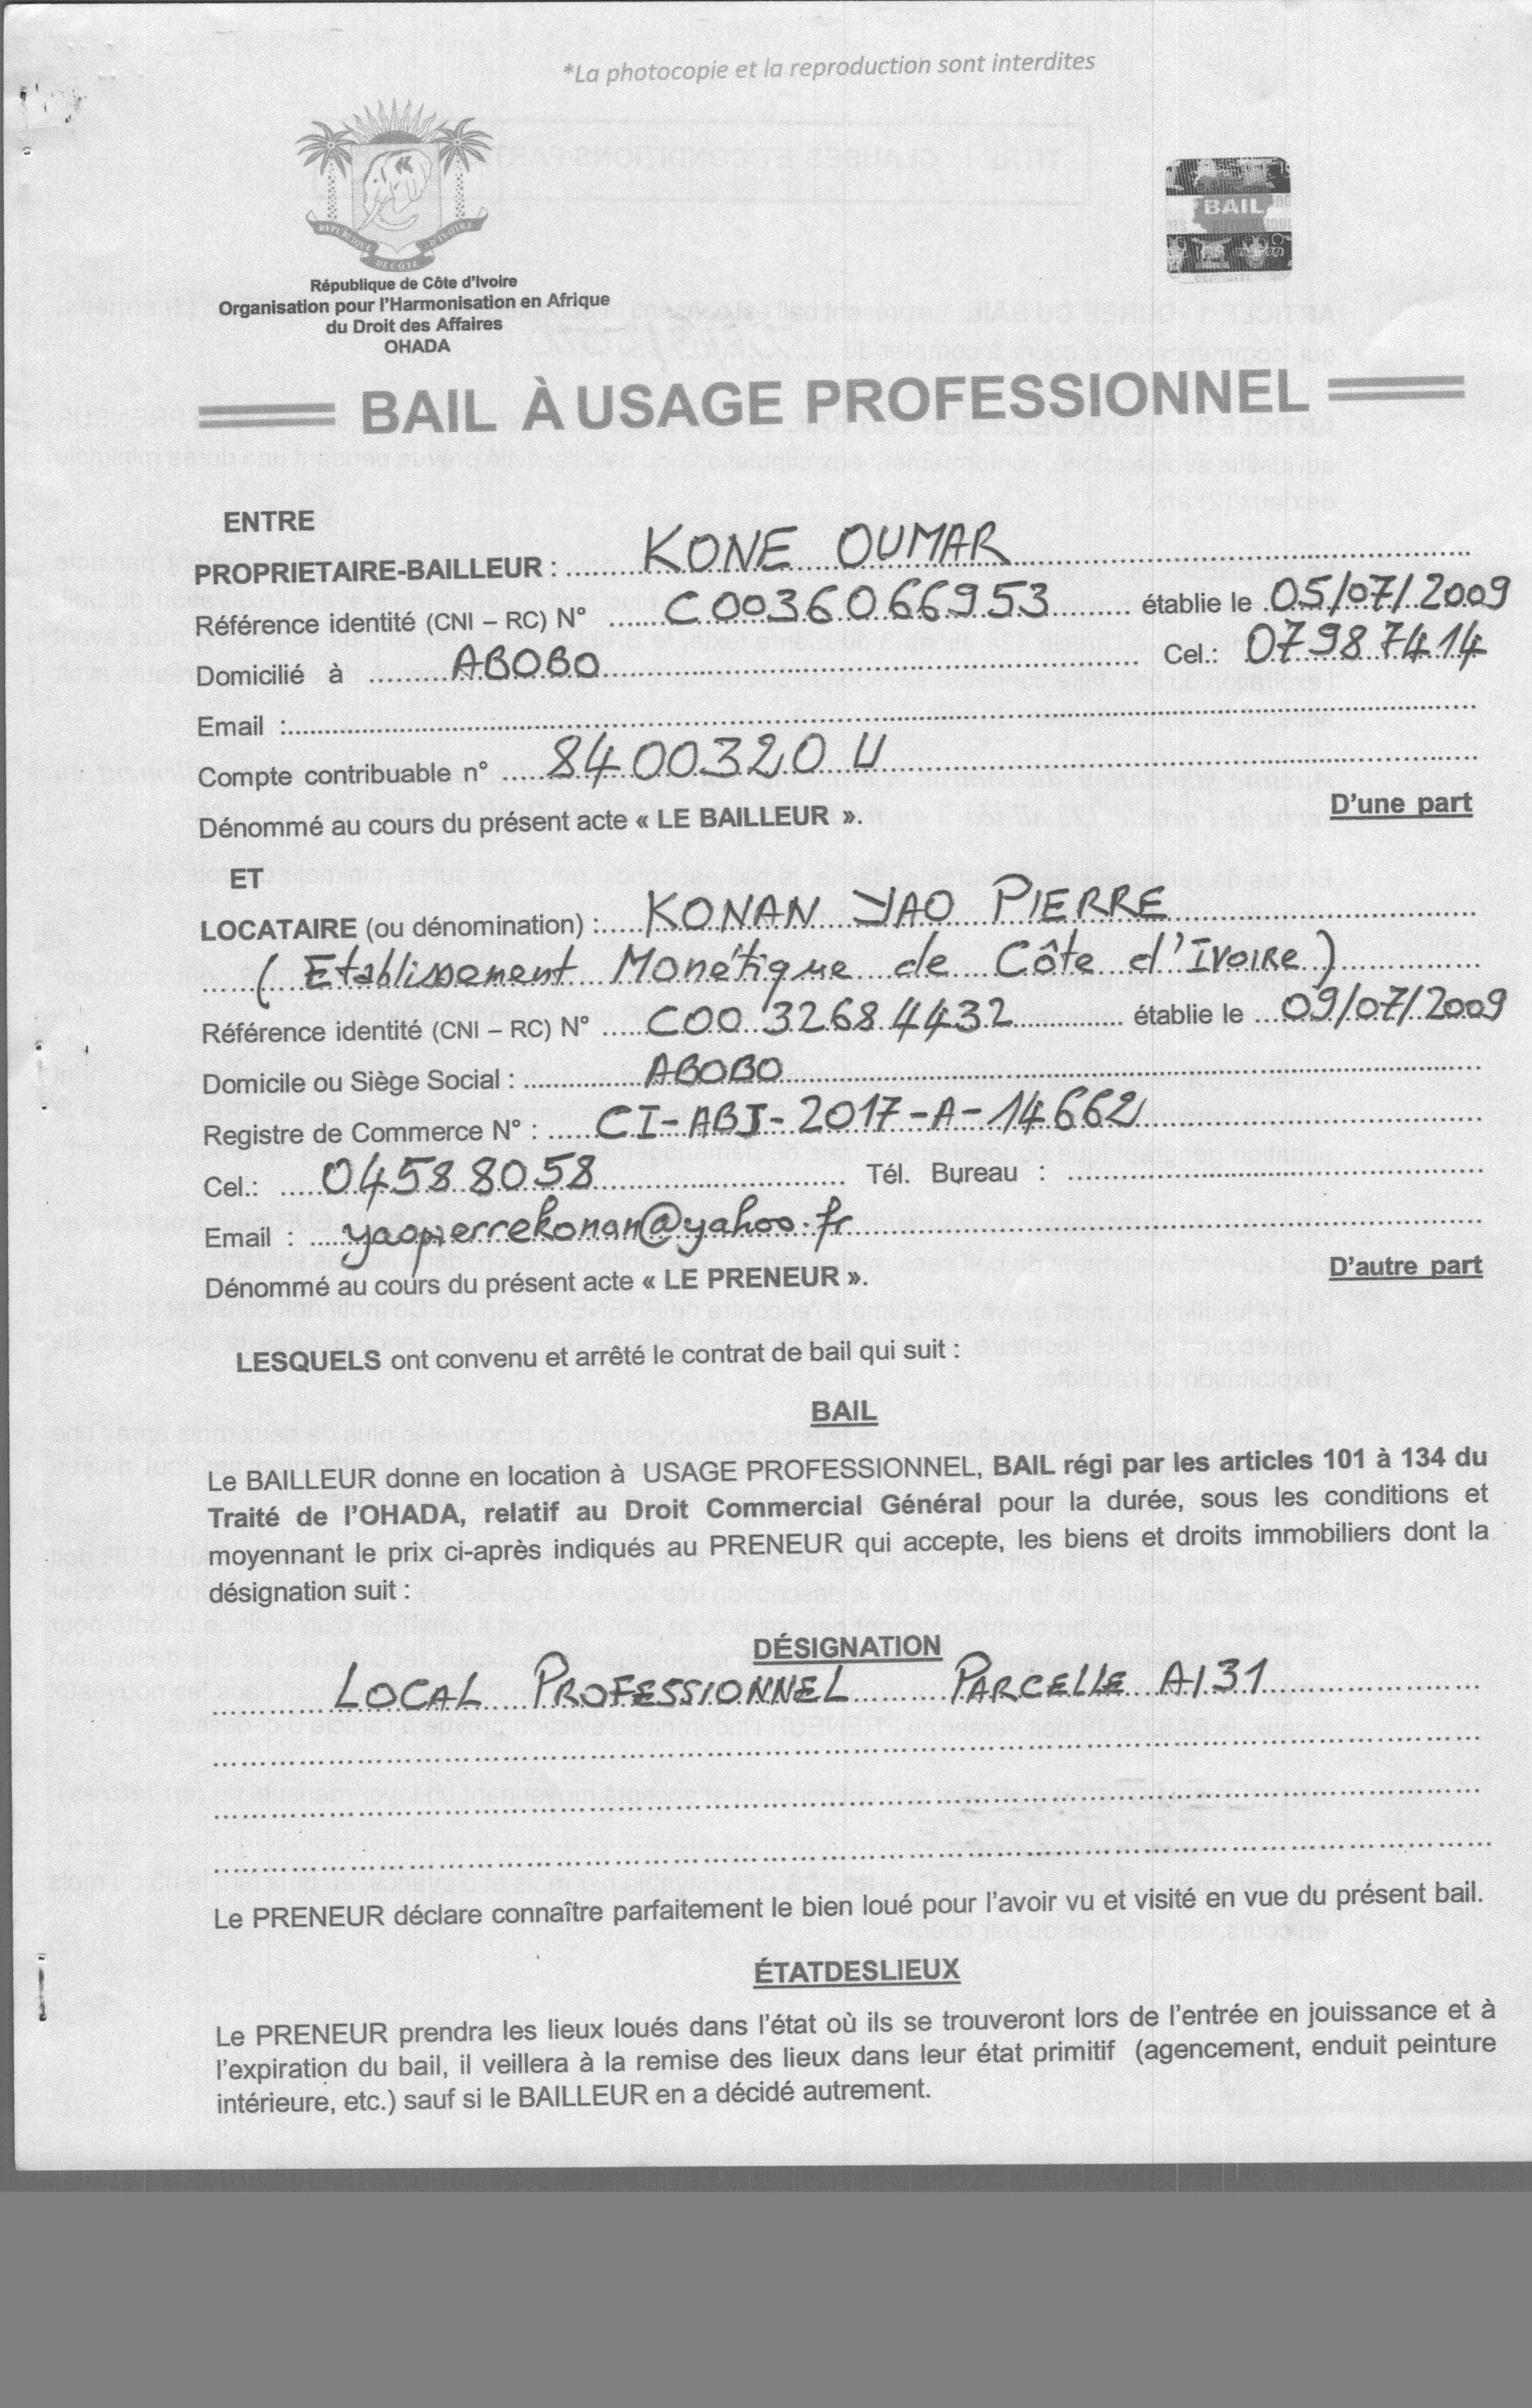 *La photocopie et la reproduction sont interdites
REPUBLIQUE DE CÔTE D'IVOIRE
BAIL
République de Côte d'Ivoire
Organisation pour l'Harmonisation en Afrique
du Droit des Affaires
OHADA
BAIL À USAGE PROFESSIONNEL
ENTRE
PROPRIETAIRE-BAILLEUR : KONE OUMAR
Référence identité (CNI – RC) N° C0036066953 établie le 05/07/2009
Domicilié à ABOBO Cel.: 07987414
Email :
Compte contribuable n° 8400320 U
Dénommé au cours du présent acte « LE BAILLEUR ». D'une part
ET
LOCATAIRE (ou dénomination) : KONAN YAO PIERRE
( Etablissement Monétique de Côte d'IVOIRE )
Référence identité (CNI – RC) N° C00 3268 4432 établie le 09/07/2009
Domicile ou Siège Social : ABOBO
Registre de Commerce N° : CI-ABJ-2017-A-14662
Cel.: 04588058 Tél. Bureau :
Email : yaopierrekonan@yahoo.fr
Dénommé au cours du présent acte « LE PRENEUR ». D'autre part
LESQUELS ont convenu et arrêté le contrat de bail qui suit :
BAIL
Le BAILLEUR donne en location à USAGE PROFESSIONNEL, BAIL régi par les articles 101 à 134 du
Traité de l'OHADA, relatif au Droit Commercial Général pour la durée, sous les conditions et
moyennant le prix ci-après indiqués au PRENEUR qui accepte, les biens et droits immobiliers dont la
désignation suit :
DÉSIGNATION
LOCAL PROFESSIONNEL PARCELLE A131
Le PRENEUR déclare connaître parfaitement le bien loué pour l'avoir vu et visité en vue du présent bail.
ÉTATDESLIEUX
Le PRENEUR prendra les lieux loués dans l'état où ils se trouveront lors de l'entrée en jouissance et à
l'expiration du bail, il veillera à la remise des lieux dans leur état primitif (agencement, enduit peinture
intérieure, etc.) sauf si le BAILLEUR en a décidé autrement.